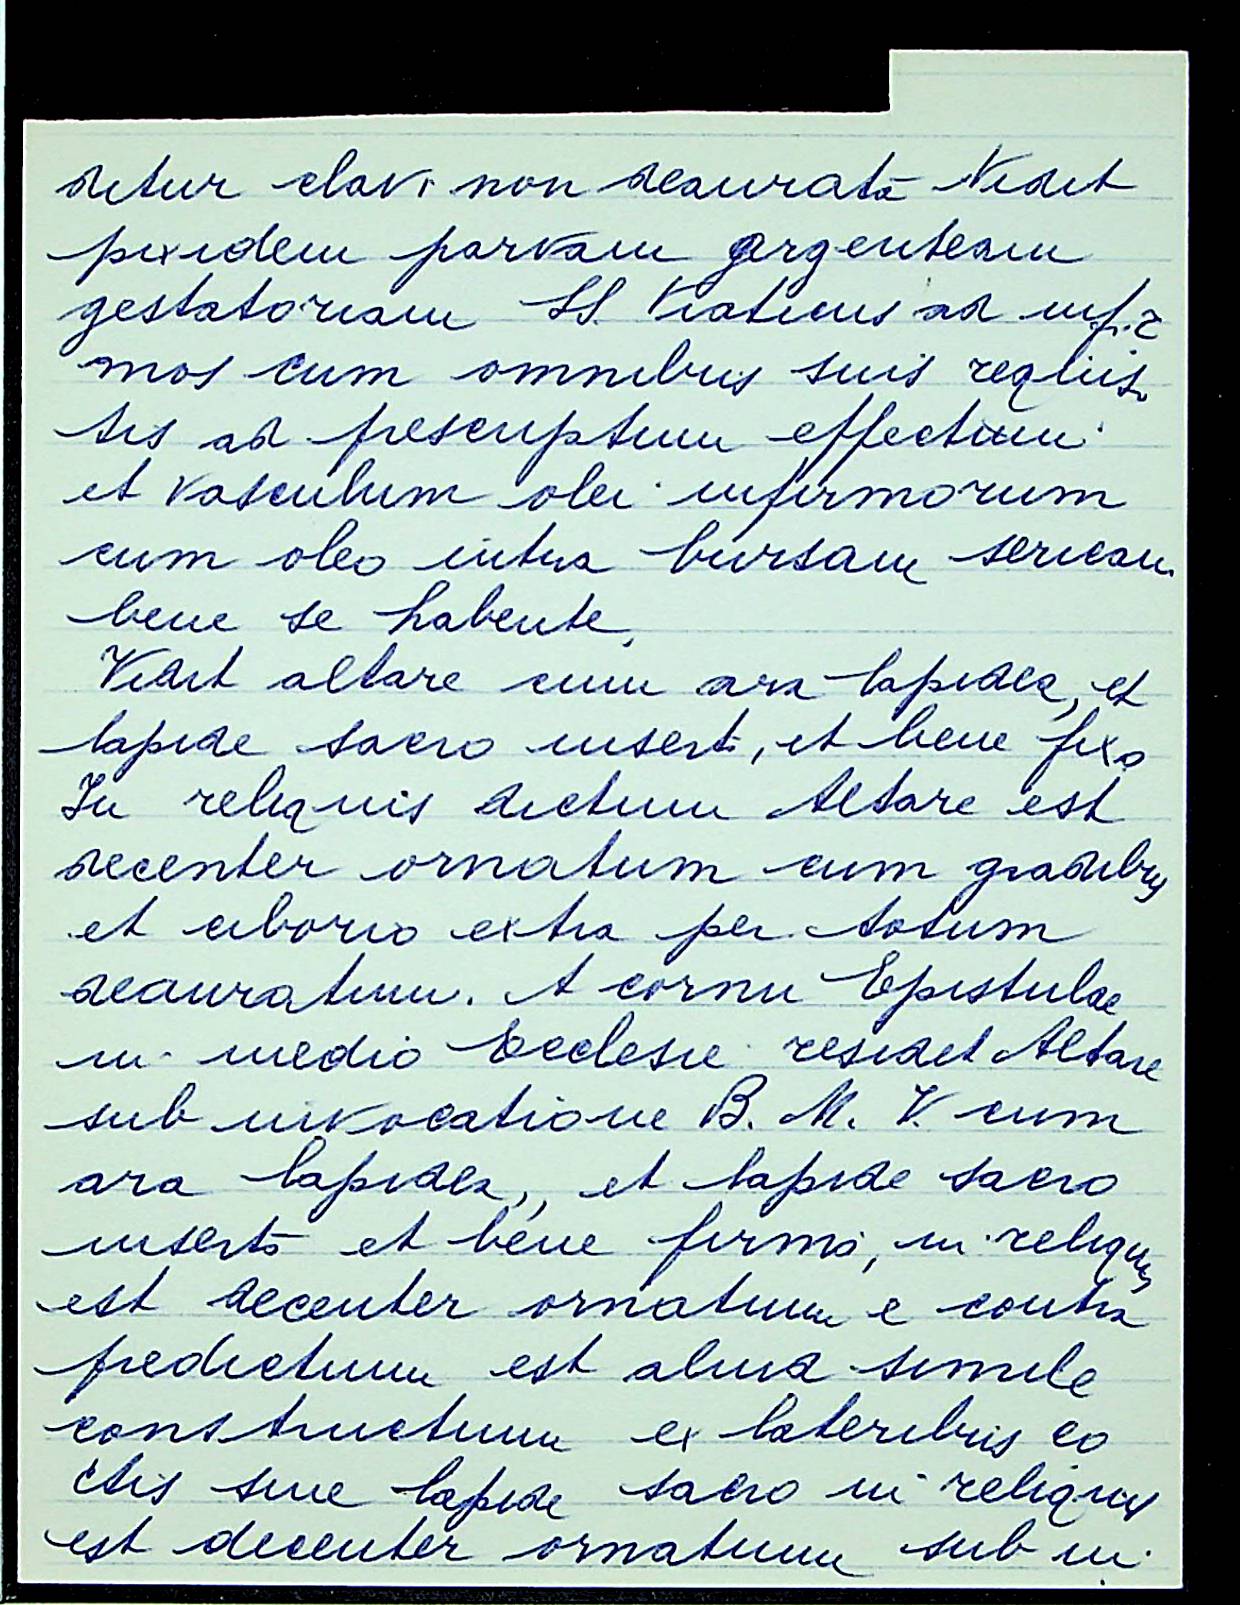 detur clavi non deaurata Vidit
pixidem parvam argenteam
gestatoriam SS. Viaticus ad infir
mos cum omnibus suis requisi
tis ad prescriptum effectum
et vasculum olei infirmorum
cum oleo intra bursam sericam
bene se habente,
Vidit altare cum ara lapidea, et
lapide sacro inserto, et bene fixo
In reliquis dictum Altare est
decenter ornatum cum gradibus
et ciborio extra per totum
deauratum. A cornu Epistulae
in medio Ecclesie residet Altare
sub invocatione B. M. V. cum
ara lapidea, et lapide sacro
inserto et bene firmo, in reliquis
est decenter ornatum e contra
predictum est aliud simile
constructum ex lateribus co
ctis sine lapide sacro in reliquis
est decenter ornatum sub in